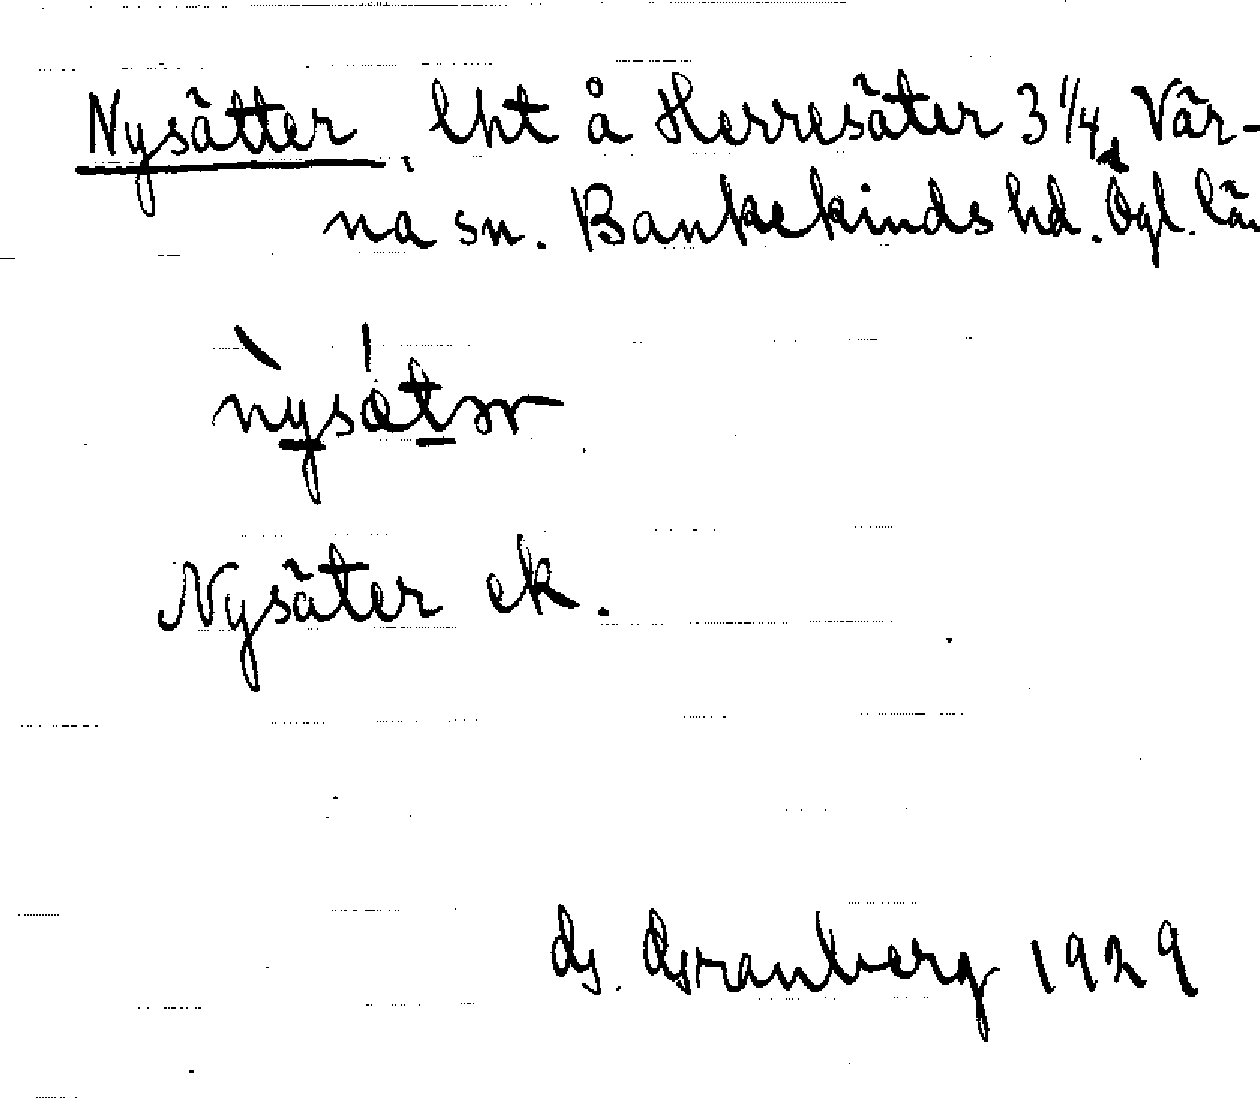 Nysätter, lht å Herresäter 3 1/4, Vär-
na sn. Bankekinds hd. Ögl. län
nysätər
Nysäter ek.
G. Granberg 1929